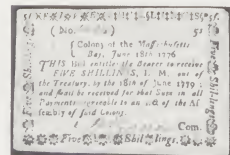 (No. 5s
{ Colony of the Massachusetts
Bay, June 18th 1776
THIS Bill entitles the Bearer to receive
FIVE SHILLINGS, L. M. out of
the Treasury, by the 18th of June 1779;
and shall be received for that Sum in all
Payments agreeable to an Act of the As
sembly of said Colony.
Com.
Five Shillings.
Five Shillings